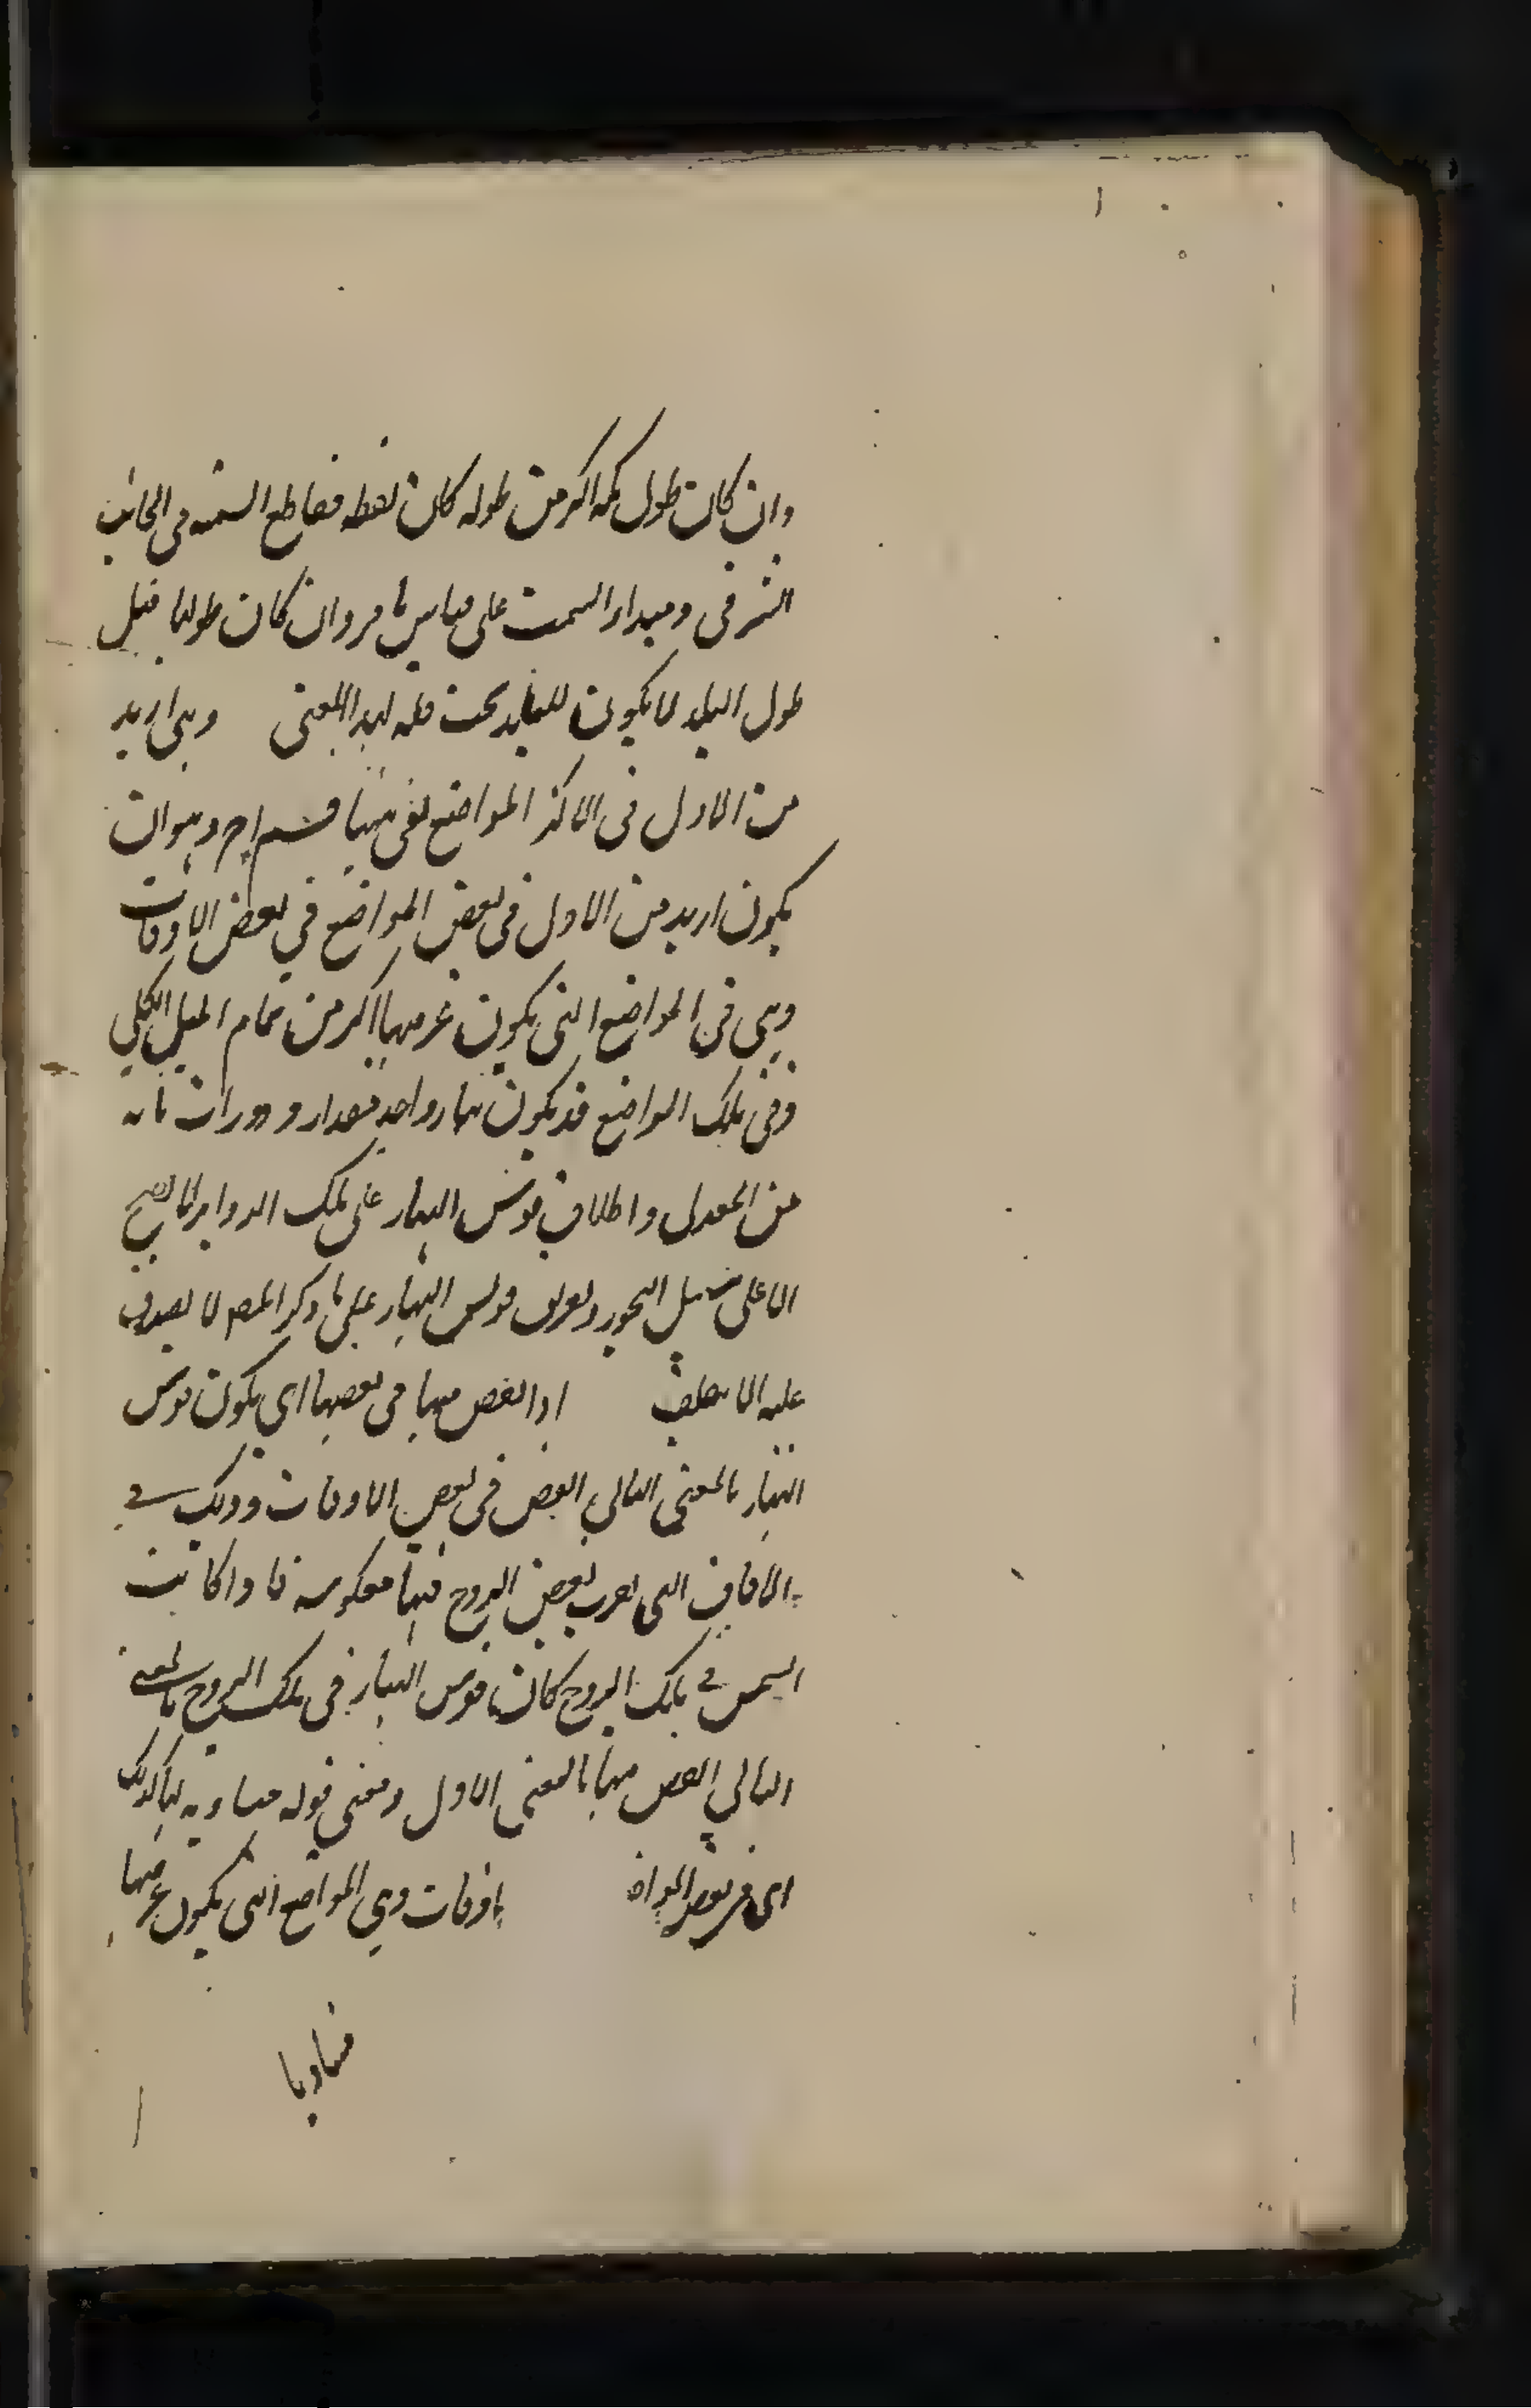 وان كان طول مكه اكثر من طوله كان نقطه تقاطع السمتيه فى الجانب
الشرقى ومبداء السمت على قياس ما مر وان كان طولها مثل
طول البلد لا يكون للبلد سمت قبله بهذا المعنى وهى ازيد
من الاول فى اكثر المواضع بقى ههنا قسم اخر وهو ان
يكون ازيد من الاول فى بعض المواضع فى بعض الاوقات
وهى فى المواضع التى يكون عرضها اكثر من تمام الميل الكلى
ففى تلك المواضع قد يكون نهار واحد مقدار دورات تامه
من المعدل واطلاق قوس النهار على تلك الدوائر لا يصح
الا على سبيل التجوز وتعريف قوس النهار على ما ذكر المصـ لا يصدق
عليه الا بتكلف او انقص منها فى بعضها اى يكون قوس
النهار بالمعنى الثانى انقص فى بعض الاوقات وذلك فى
الافاق التى تغرب بعض البروج فيها معكوسه فاذا كانت
الشمس فى تلك البروج كان قوس النهار فى تلك البروج بالمعنى
الثانى انقص منها بالمعنى الاول ومعنى قوله مساويه لها كذلك
اى فى بعض المواضـ اوقات وهى المواضع التى يكون عرضها
مساويا